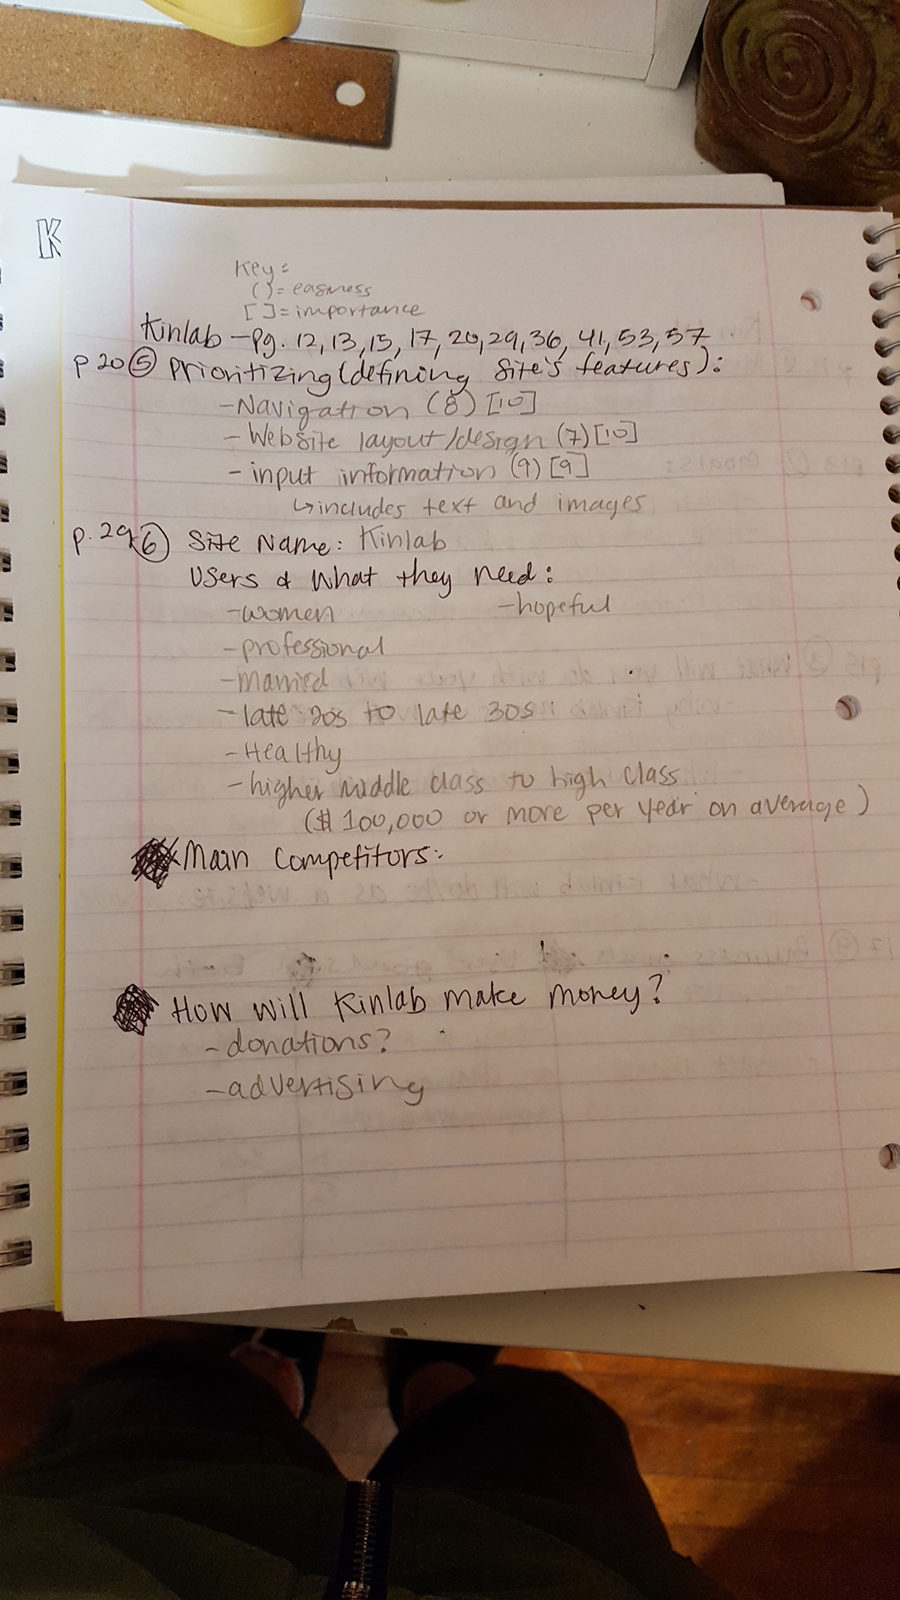 K
Key=
()= easyness
[ ]= importance
Kinlab - Pg. 12, 13, 15, 17, 20, 29, 36, 41, 53, 57
p 20 5 Prioritizing (defining site's features):
- Navigation (8) [10]
- Website layout/design (7) [10]
- input information (9) [9]
↳ includes text and images
p. 29 6 Site Name: Kinlab
Users & What they need:
- women - hopeful
- professional
- married
- late 20s to late 30s
- Healthy
- higher middle class to high class
($ 100,000 or more per year on average)
Main Competitors:
How will Kinlab make money?
- donations?
- advertising